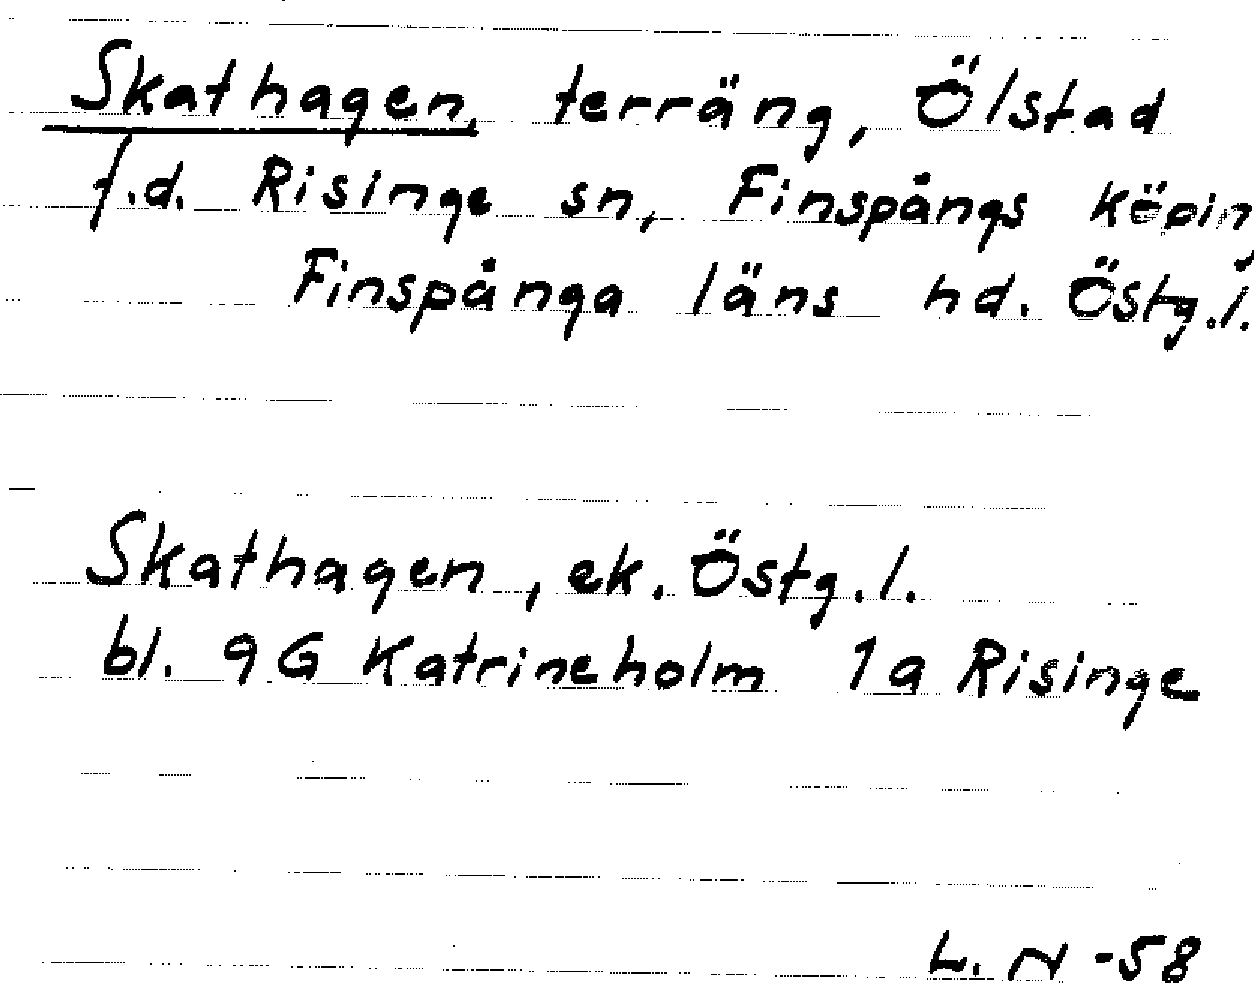 Skathagen, terräng, Ölstad
f.d. Risinge sn, Finspångs köping
Finspånga läns hd. Östg.l.
Skathagen, ek. Östg.l.
bl. 9G Katrineholm 1a Risinge
L. N -58